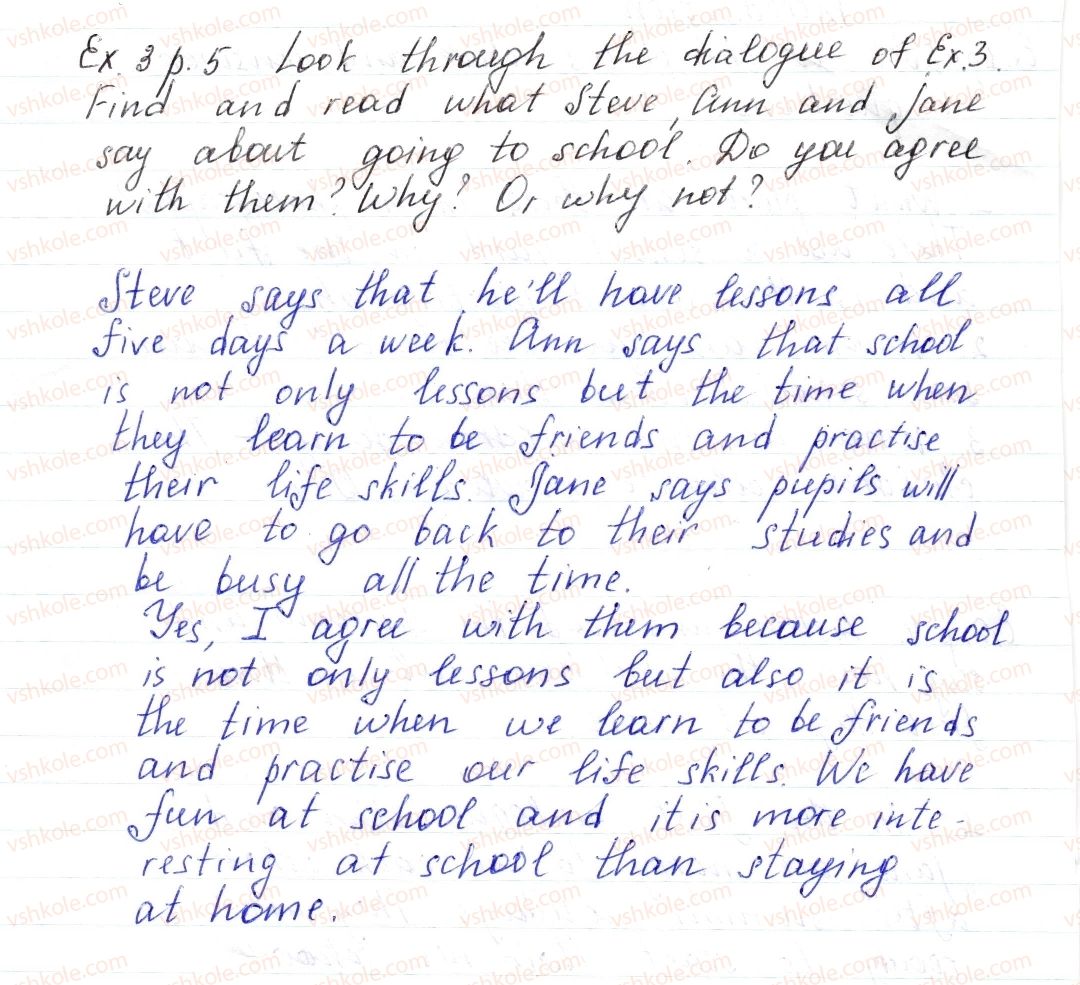 Ex 3 p. 5 Look through the dialogue of Ex.3.
Find and read what Steve, Ann and Jane
say about going to school. Do you agree
with them? Why? Or why not?
Steve says that he'll have lessons all
five days a week. Ann says that school
is not only lessons but the time when
they learn to be friends and practise
their life skills. Jane says pupils will
have to go back to their studies and
be busy all the time.
Yes, I agree with them because school
is not only lessons but also it is
the time when we learn to be friends
and practise our life skills. We have
fun at school and it is more inte-
resting at school than staying
at home.
vshkole.com